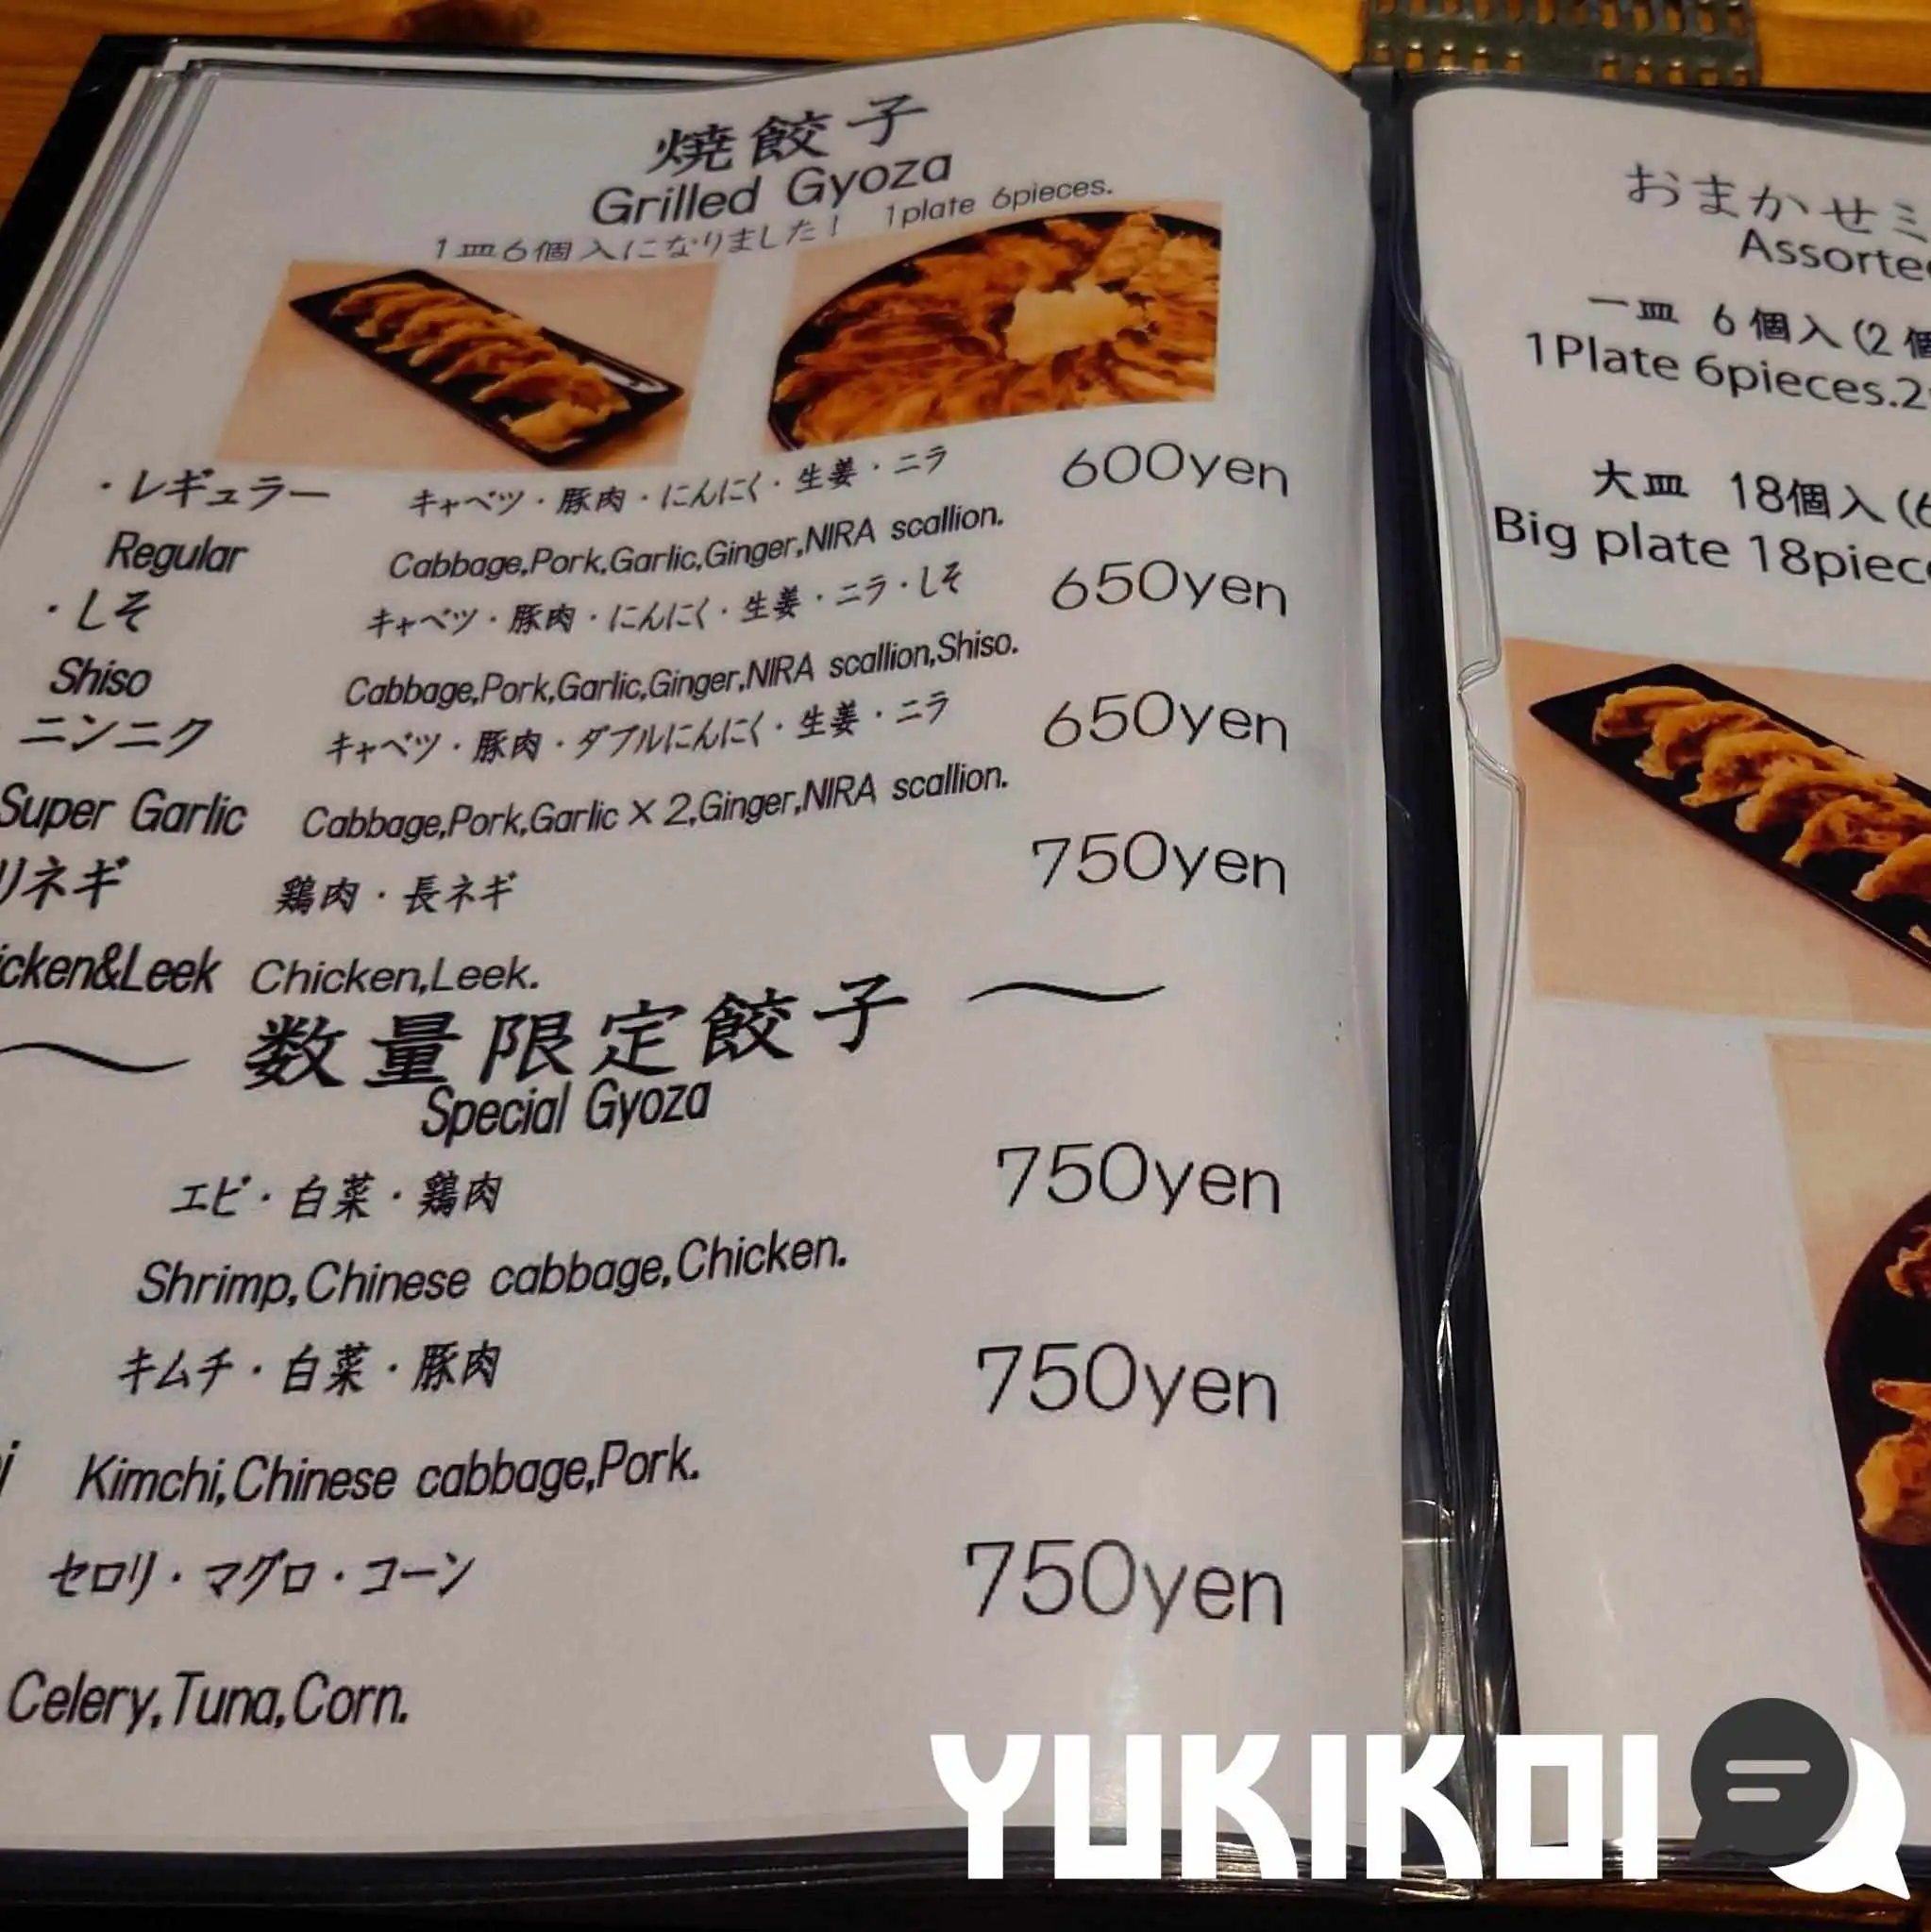 焼餃子
Grilled Gyoza
1皿6個入になりました! 1plate 6pieces.
・レギュラー キャベツ・豚肉・にんにく・生姜・ニラ 600yen
Regular Cabbage,Pork,Garlic,Ginger,NIRA scallion.
・しそ キャベツ・豚肉・にんにく・生姜・ニラ・しそ 650yen
Shiso Cabbage,Pork,Garlic,Ginger,NIRA scallion,Shiso.
ニンニク キャベツ・豚肉・ダブルにんにく・生姜・ニラ 650yen
Super Garlic Cabbage,Pork,Garlic×2,Ginger,NIRA scallion.
リネギ 鶏肉・長ネギ 750yen
icken&Leek Chicken,Leek.
〜 数量限定餃子 〜
Special Gyoza
エビ・白菜・鶏肉 750yen
Shrimp,Chinese cabbage,Chicken.
キムチ・白菜・豚肉 750yen
i Kimchi,Chinese cabbage,Pork.
セロリ・マグロ・コーン 750yen
Celery,Tuna,Corn.
おまかせミ
Assorte
一皿 6個入(2個
1Plate 6pieces.2
大皿 18個入(6
Big plate 18piec
YUKIKOI